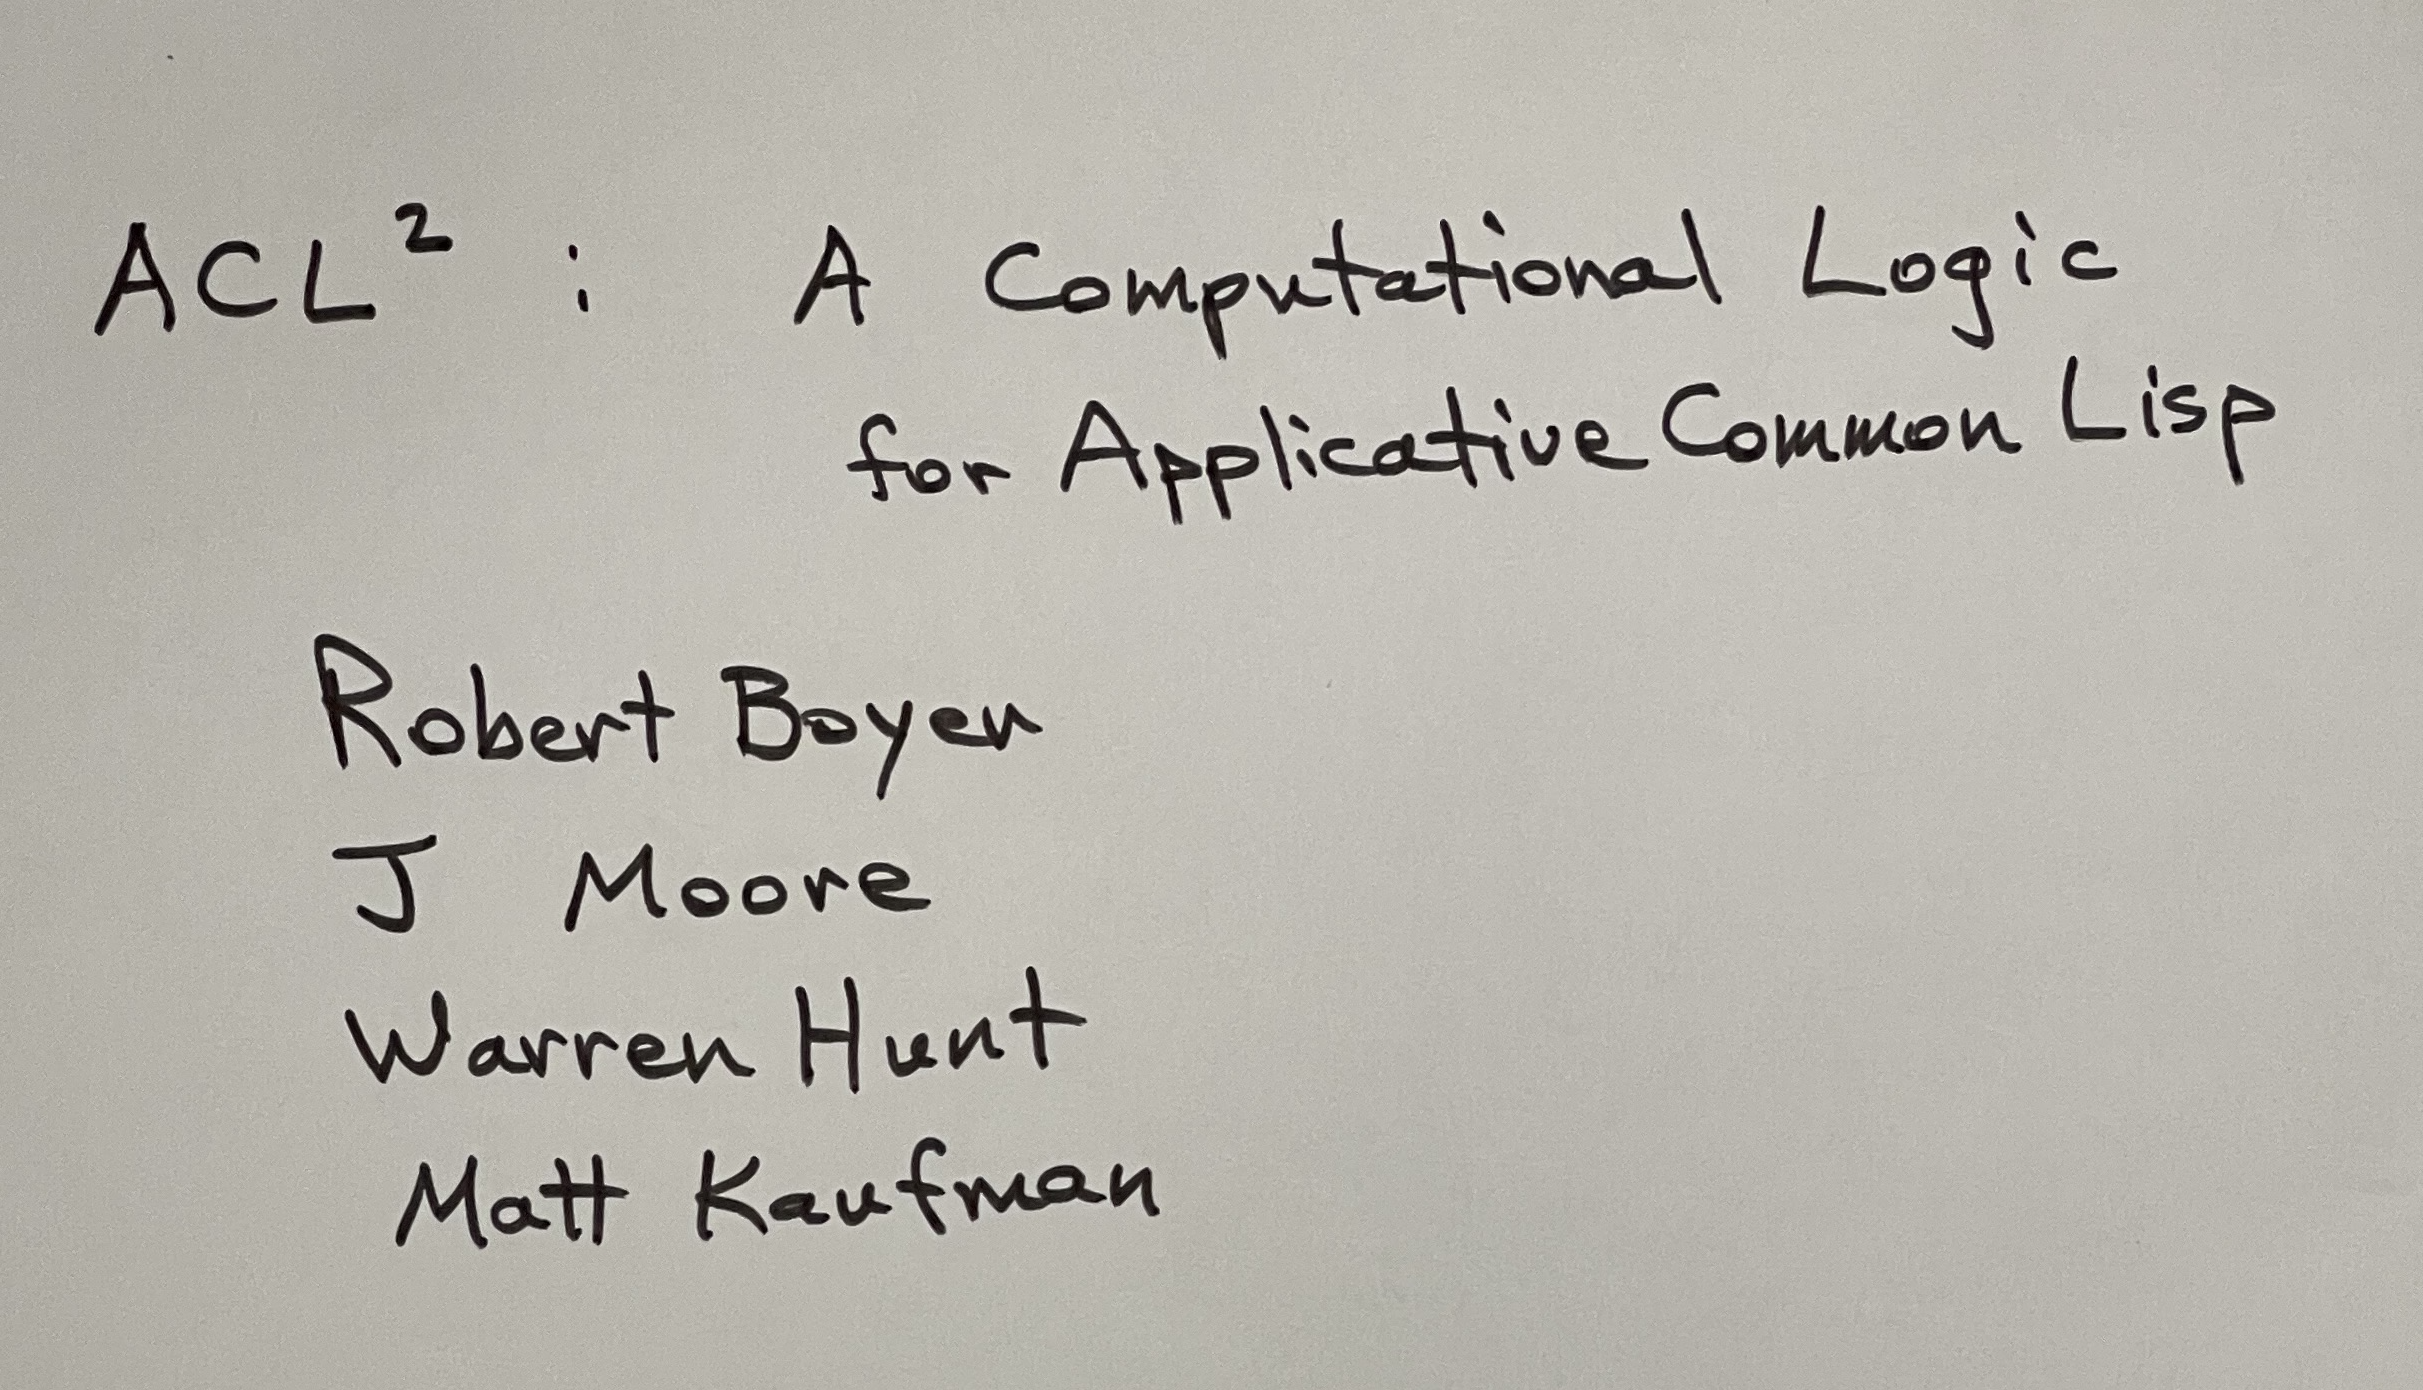 ACL² : A Computational Logic
for Applicative Common Lisp
Robert Boyer
J Moore
Warren Hunt
Matt Kaufman